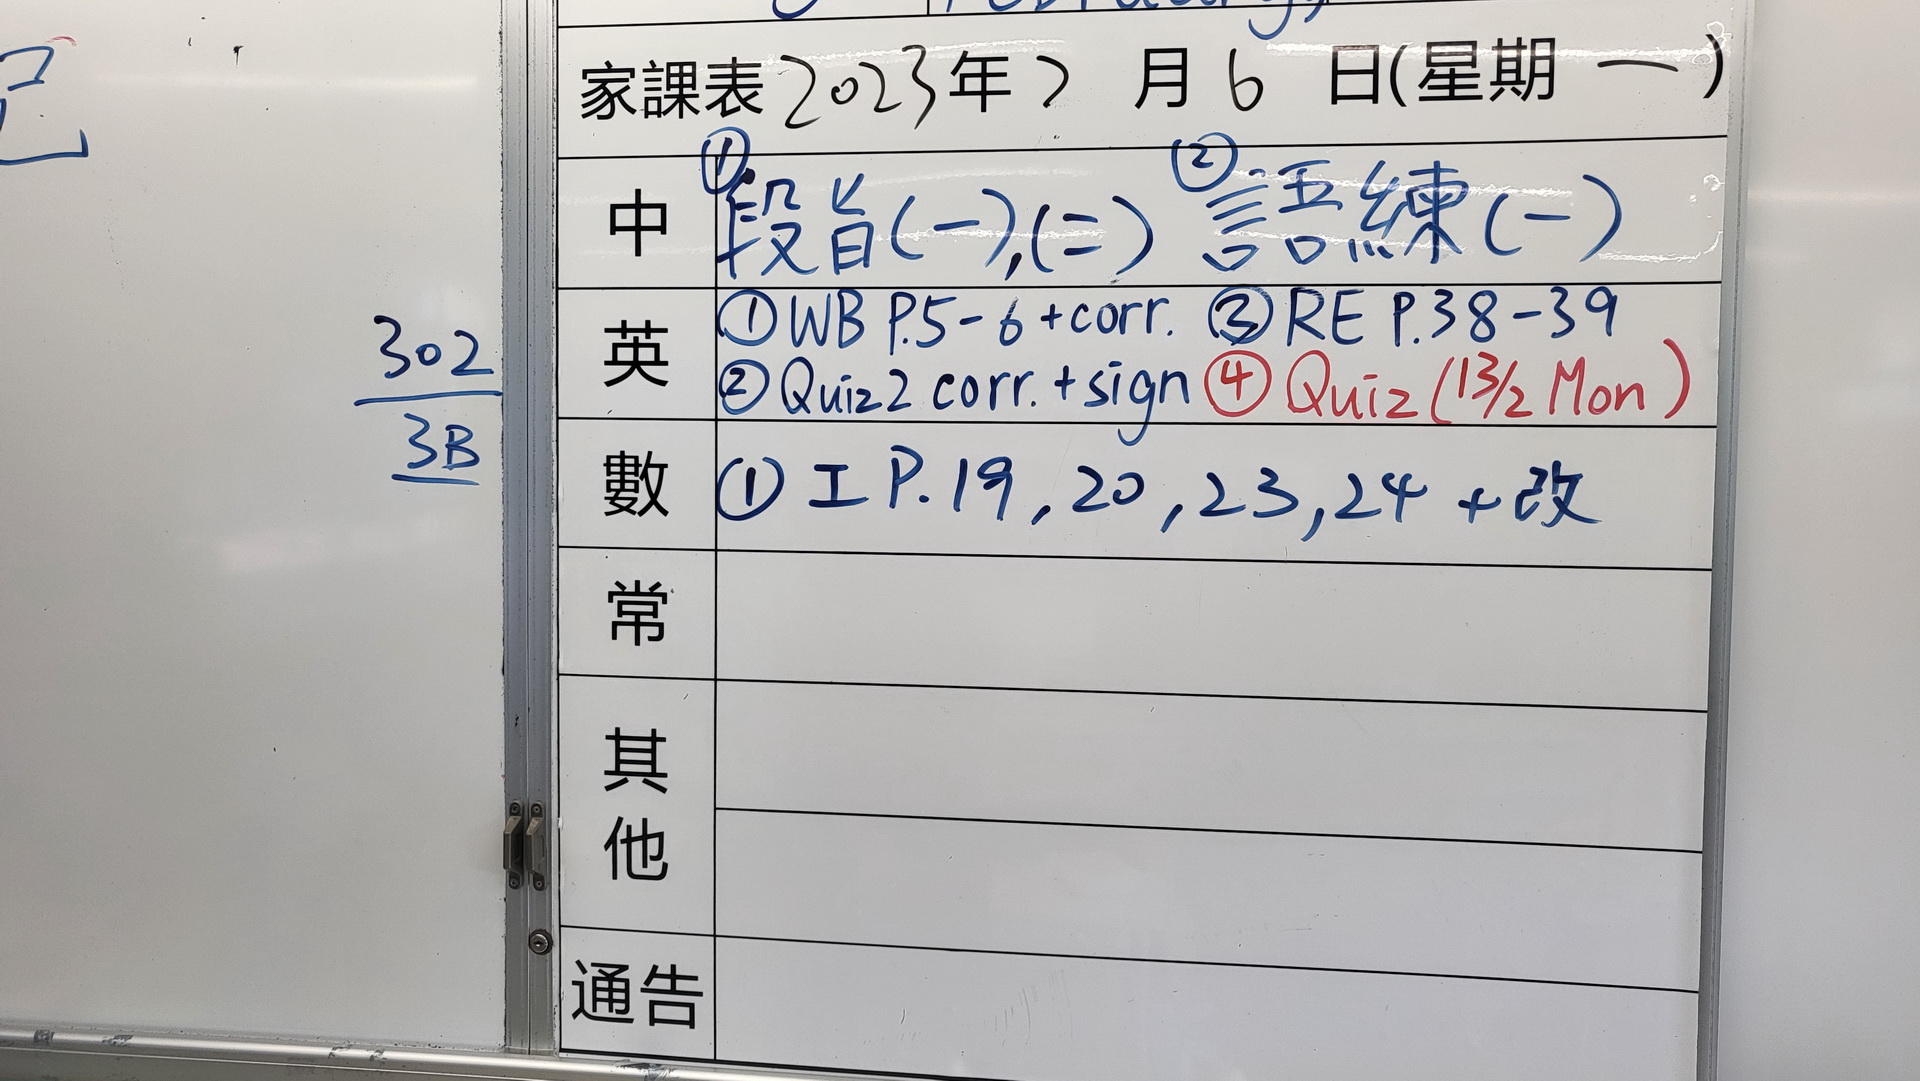 家課表 2023年2月6日(星期一)
中 ①段旨(一),(二) ②語練(一)
英 ①WB P.5-6+corr. ③RE P.38-39
②Quiz2 corr.+sign ④Quiz(13/2 Mon)
數 ①工 P.19,20,23,24 +改
常
其他
通告
302
3B